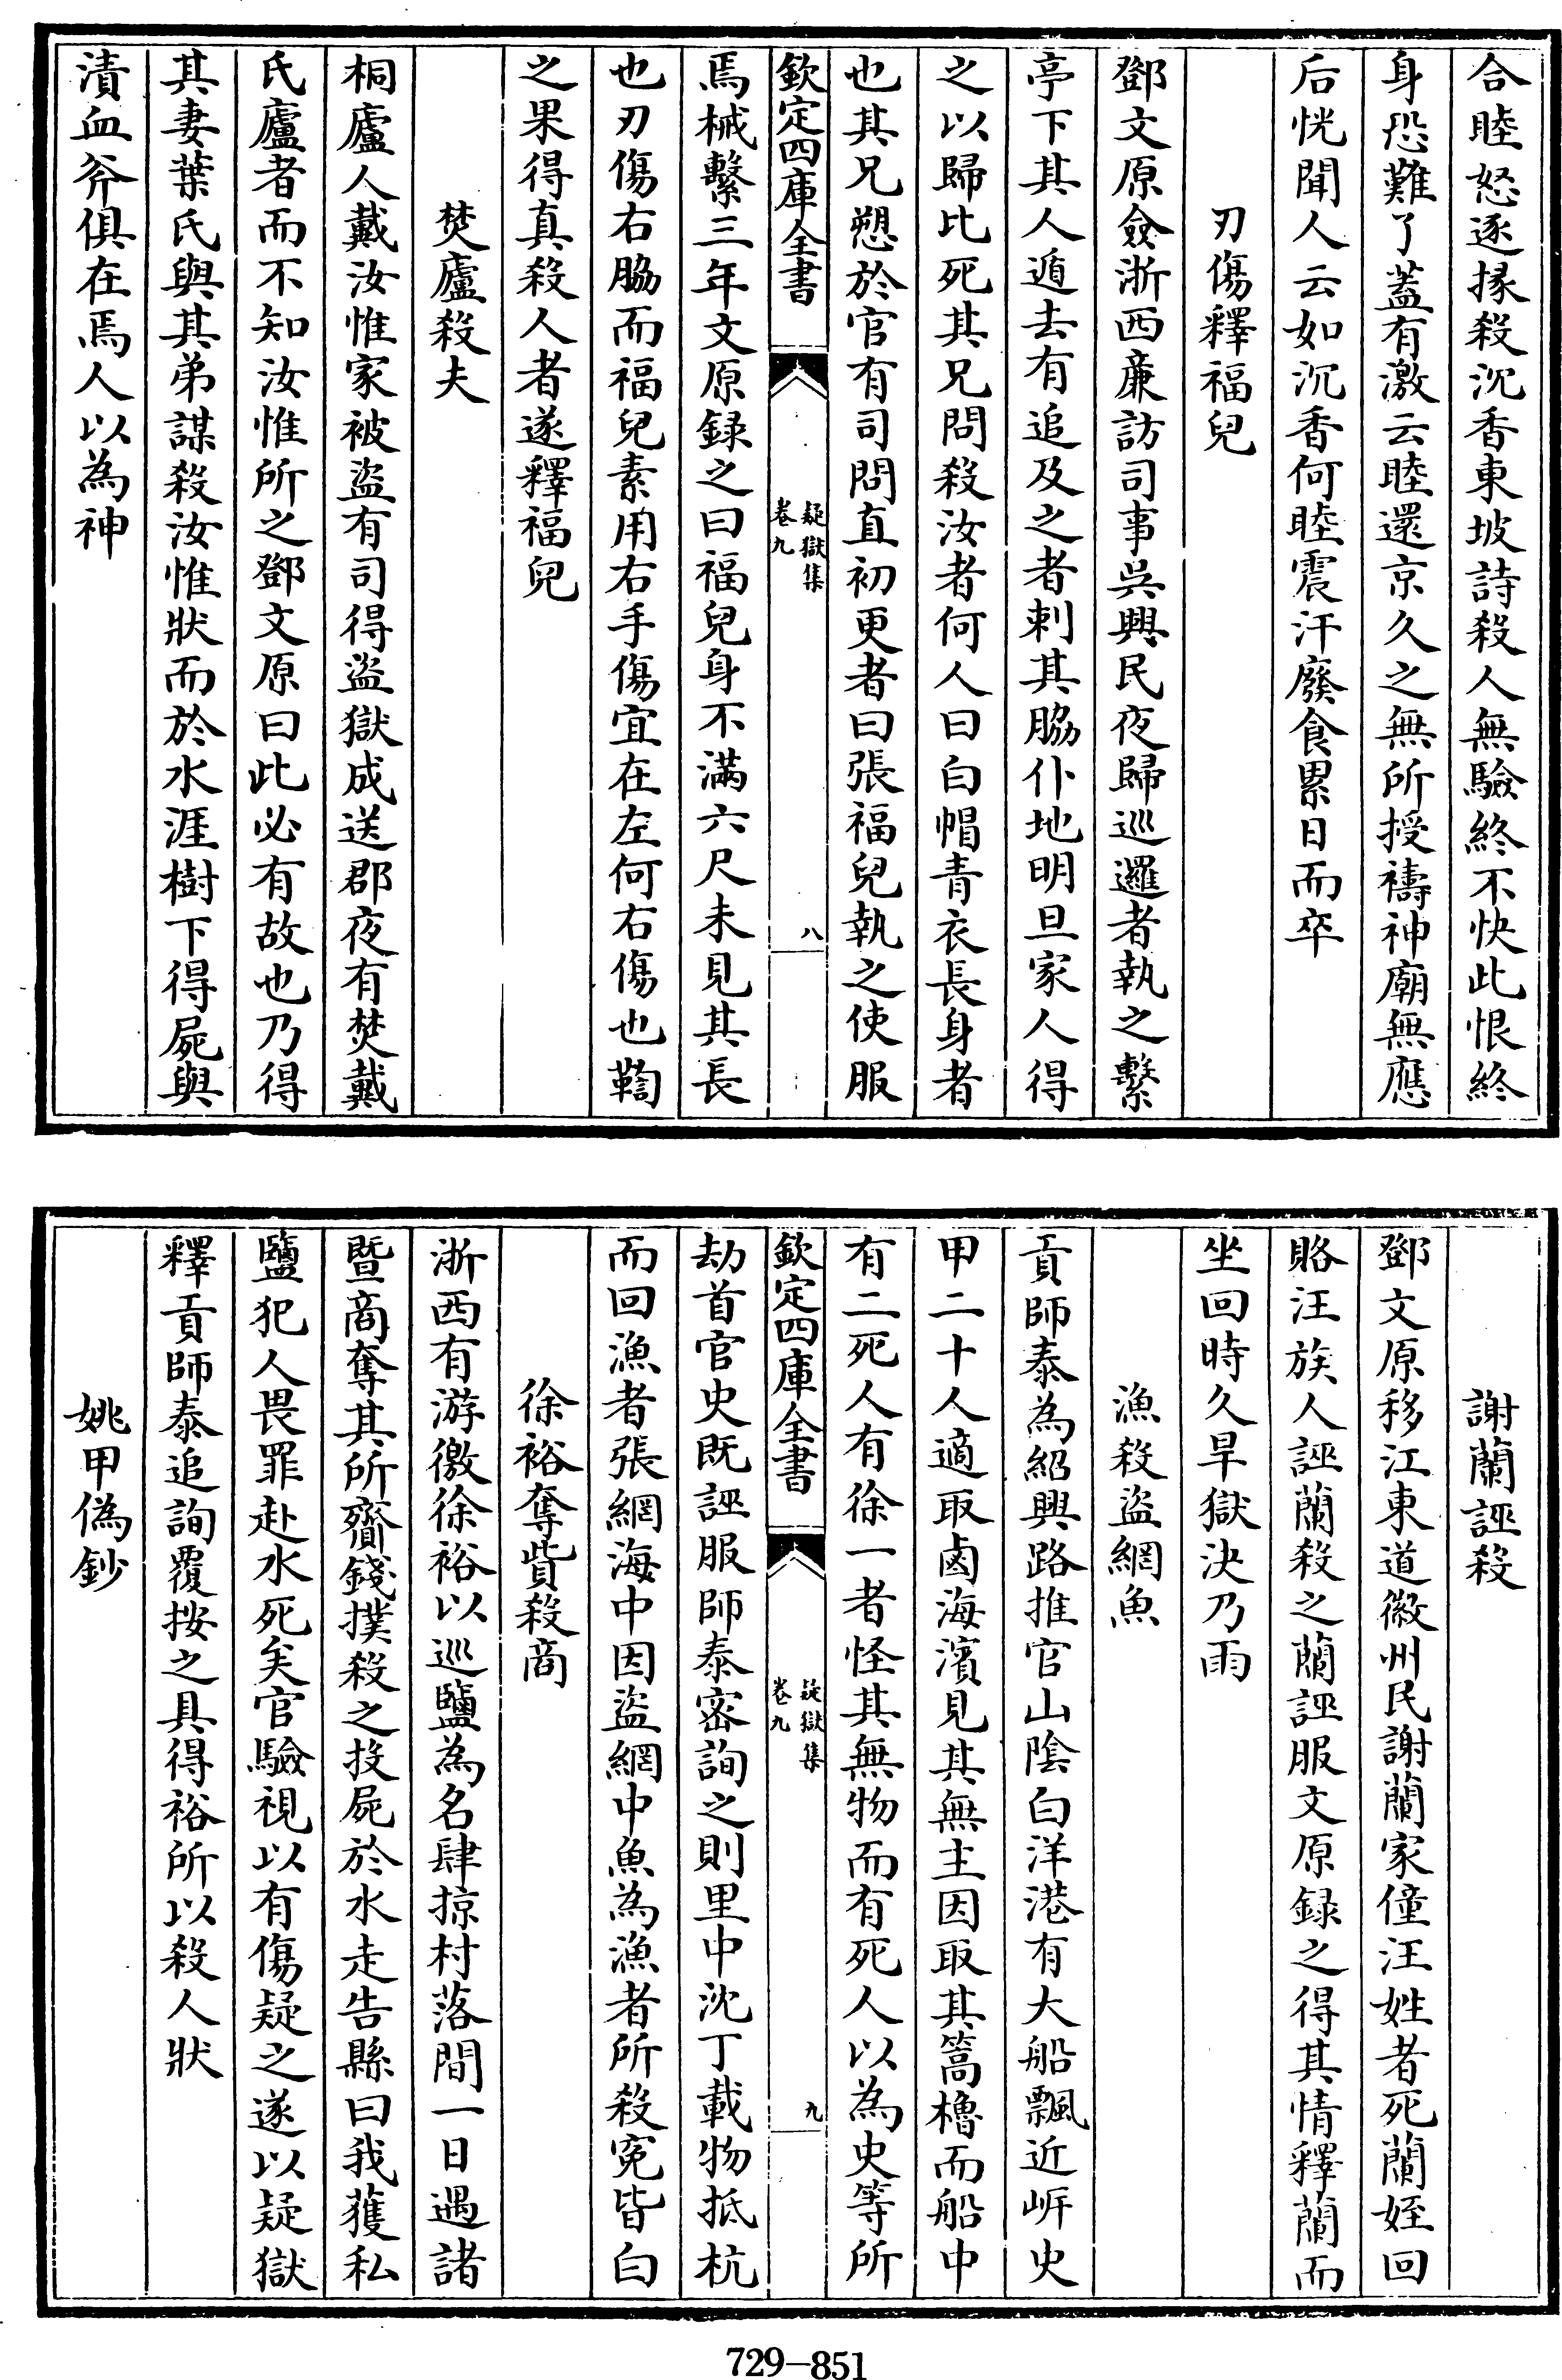 合睦怒逐掾殺沉香東坡詩殺人無驗終不快此恨終
身恐難了蓋有激云睦還京久之無所授禱神廟無應
后恍聞人云如沉香何睦震汗廢食累日而卒
刃傷釋福兒
鄧文原僉浙西亷訪司事吳興民夜歸巡邏者執之繫
亭下其人遁去有追及之者刺其脇仆地明旦家人得
之以歸比死其兄問殺汝者何人曰白帽青衣長身者
也其兄愬於官有司問直初更者曰張福兒執之使服
欽定四庫全書
疑獄集
卷九
八
焉械繫三年文原録之曰福兒身不滿六尺未見其長
也刃傷右脇而福兒素用右手傷宜在左何右傷也鞫
之果得真殺人者遂釋福兒
焚廬殺夫
桐廬人戴汝惟家被盜有司得盜獄成送郡夜有焚戴
氏廬者而不知汝惟所之鄧文原曰此必有故也乃得
其妻葉氏與其弟謀殺汝惟狀而於水涯樹下得屍與
漬血斧俱在焉人以為神
謝蘭誣殺
鄧文原移江東道徽州民謝蘭家僮汪姓者死蘭姪回
賂汪族人誣蘭殺之蘭誣服文原録之得其情釋蘭而
坐回時久旱獄決乃雨
漁殺盜網魚
貢師泰為紹興路推官山陰白洋港有大船飄近岸史
甲二十人適取鹵海濱見其無主因取其篙櫓而船中
有二死人有徐一者怪其無物而有死人以為史等所
欽定四庫全書
疑獄集
卷九
九
劫首官史既誣服師泰密詢之則里中沈丁載物抵杭
而回漁者張網海中因盜網中魚為漁者所殺寃皆白
徐裕奪貲殺商
浙西有游徼徐裕以巡鹽為名肆掠村落間一日遇諸
暨商奪其所齎錢撲殺之投屍於水走告縣曰我獲私
鹽犯人畏罪赴水死矣官驗視以有傷疑之遂以疑獄
釋貢師泰追詢覆按之具得裕所以殺人狀
姚甲偽鈔
729—851